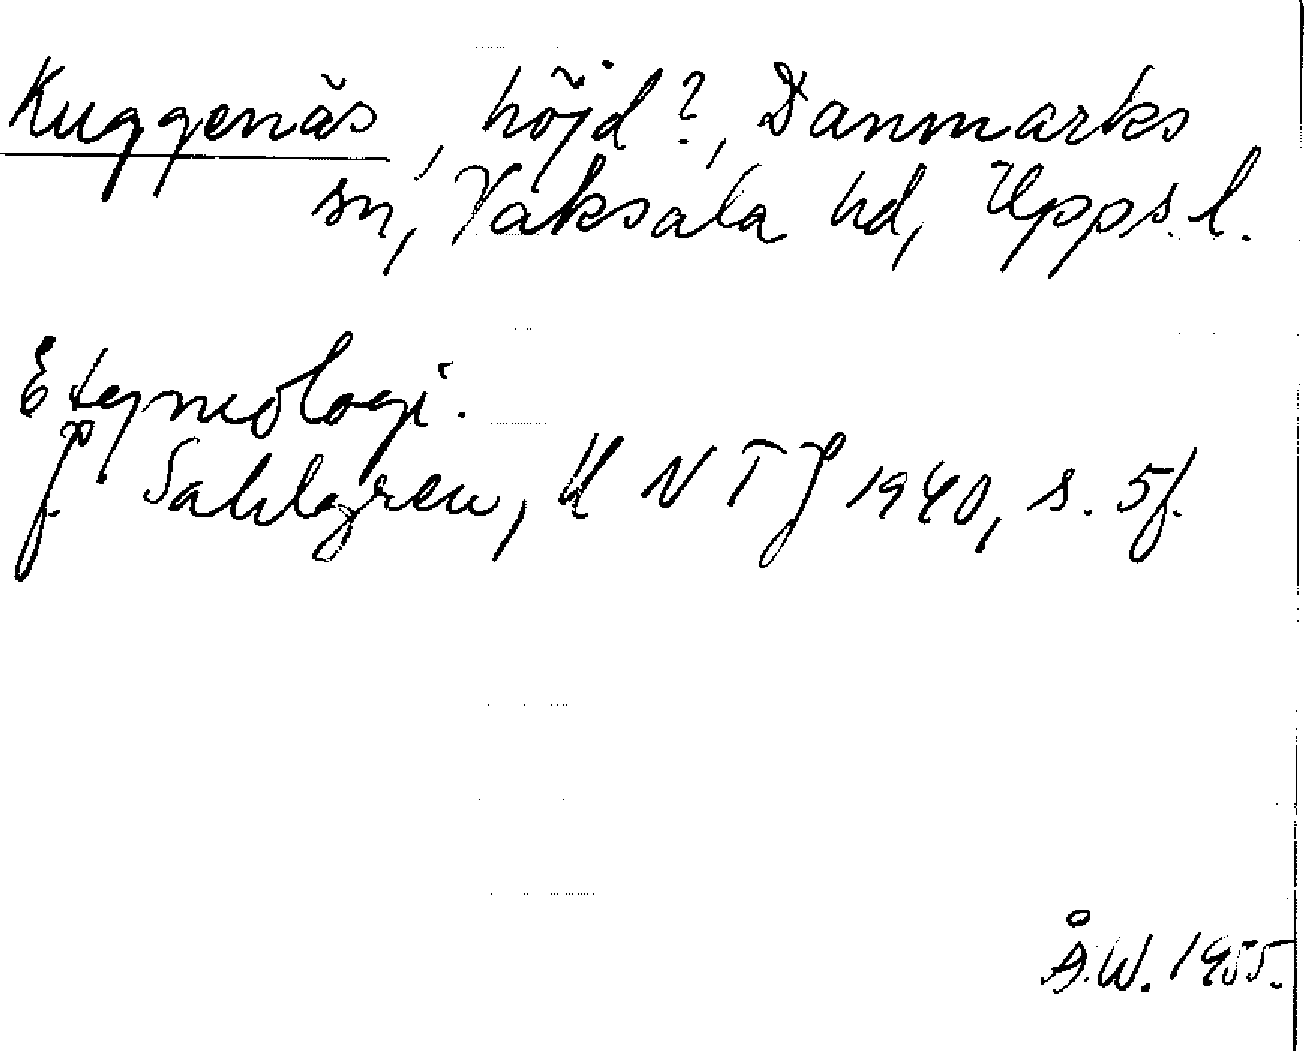 Kuggenäs, höjd?, Danmarks
sn, Vaksala hd, Upps. l.
Etymologi.
J. Sahlgren, UNTJ 1940, s. 5f.
Å.W. 1955.